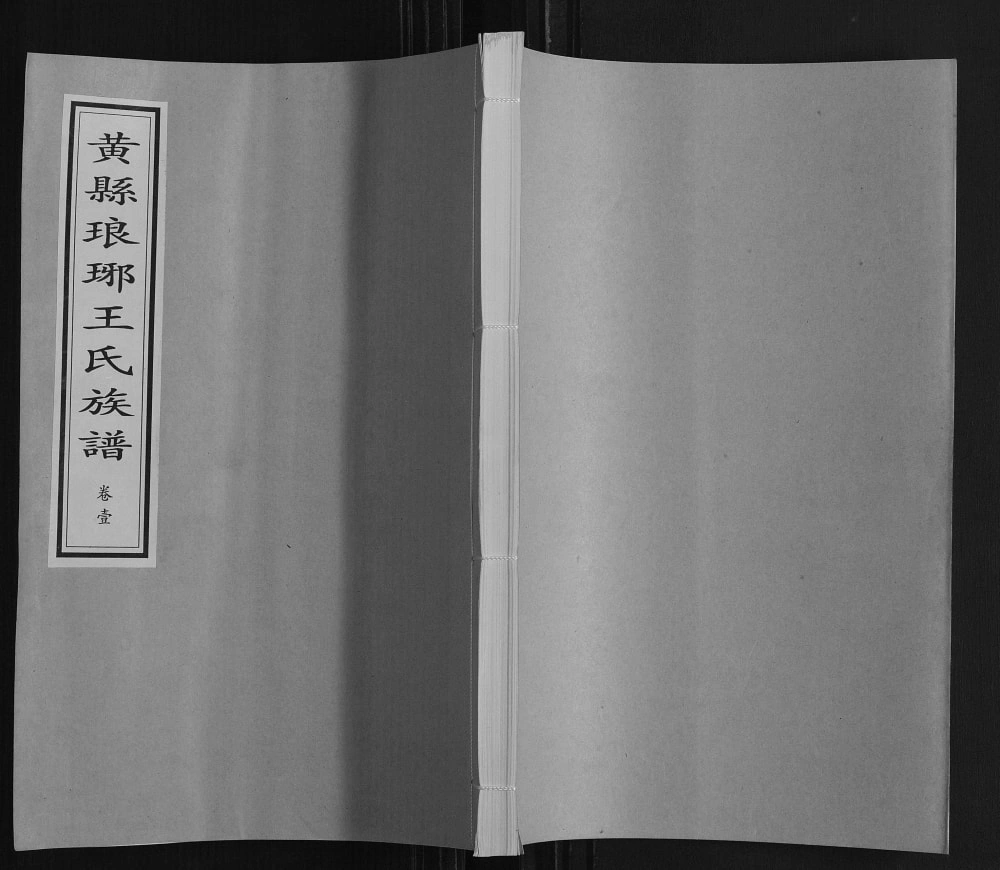 黄縣琅琊王氏族譜
卷壹